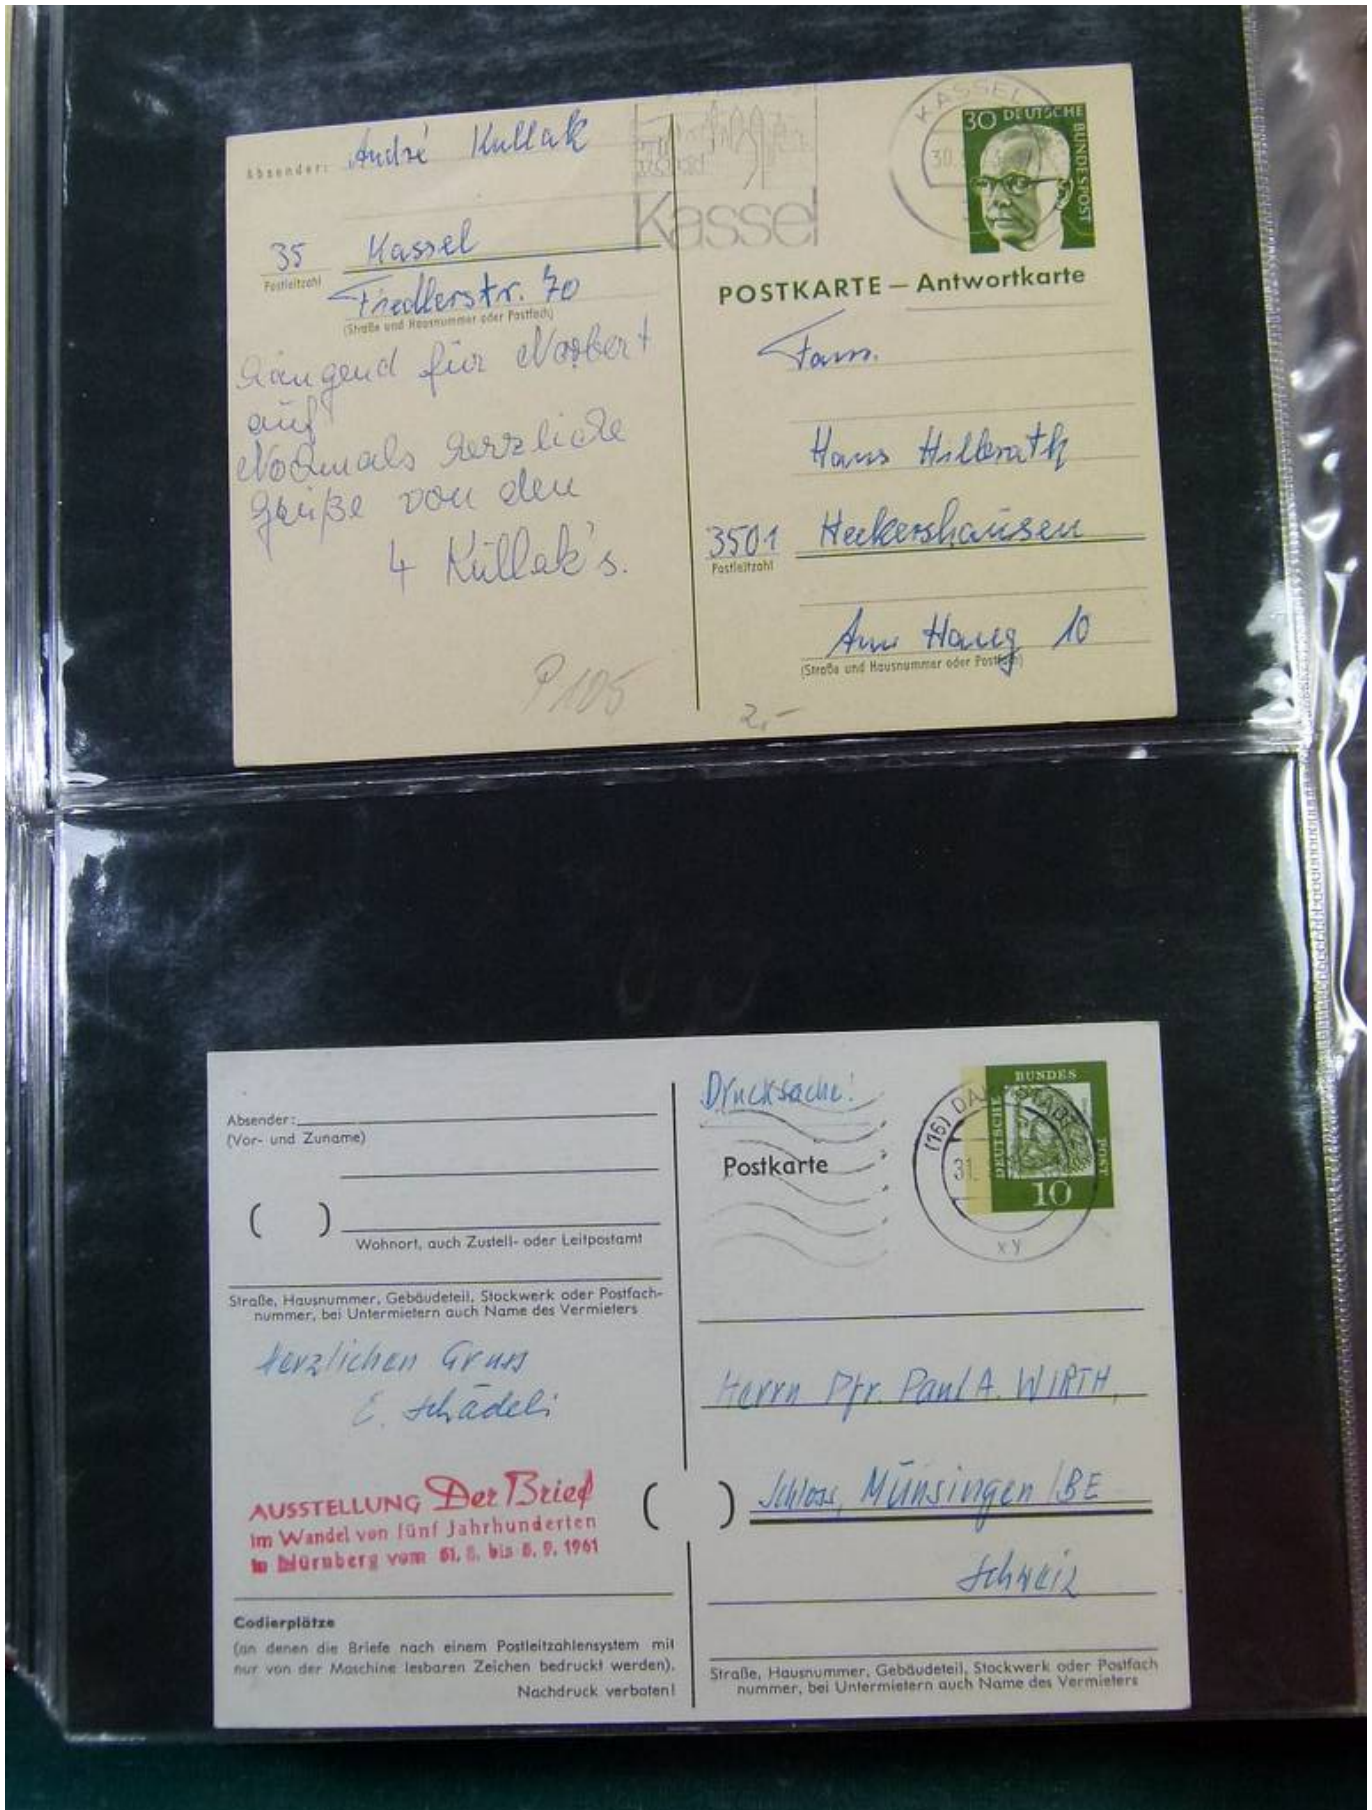 Absender: André Kullak
35 Kassel
Postleitzahl
Fiedlerstr. 70
(Straße und Hausnummer oder Postfach)
für Norbert
auf
Nochmals herzliche
Grüße von den
4 Kullak's.
P 105
2,-
Kassel
KASSEL
30 DEUTSCHE
BUNDESPOST
POSTKARTE — Antwortkarte
Fam.
Hans Hillerath
3501 Heckershausen
Postleitzahl
Am Hang 10
(Straße und Hausnummer oder Postfach)
Absender:
(Vor- und Zuname)
( )
Wohnort, auch Zustell- oder Leitpostamt
Straße, Hausnummer, Gebäudeteil, Stockwerk oder Postfach-
nummer, bei Untermietern auch Name des Vermieters
Herzlichen Gruss
E. Schädeli
AUSSTELLUNG Der Brief
im Wandel von fünf Jahrhunderten
in Nürnberg vom 31. 8. bis 8. 9. 1961
Codierplätze
(an denen die Briefe nach einem Postleitzahlensystem mit
nur von der Maschine lesbaren Zeichen bedruckt werden).
Nachdruck verboten!
Drucksache!
Postkarte
(16) DARMSTADT
31.
xy
BUNDES
DEUTSCHE
POST
10
Herrn Pfr. Paul A. WIRTH,
( ) Schloss, Münsingen/BE
Schweiz
Straße, Hausnummer, Gebäudeteil, Stockwerk oder Postfach
nummer, bei Untermietern auch Name des Vermieters